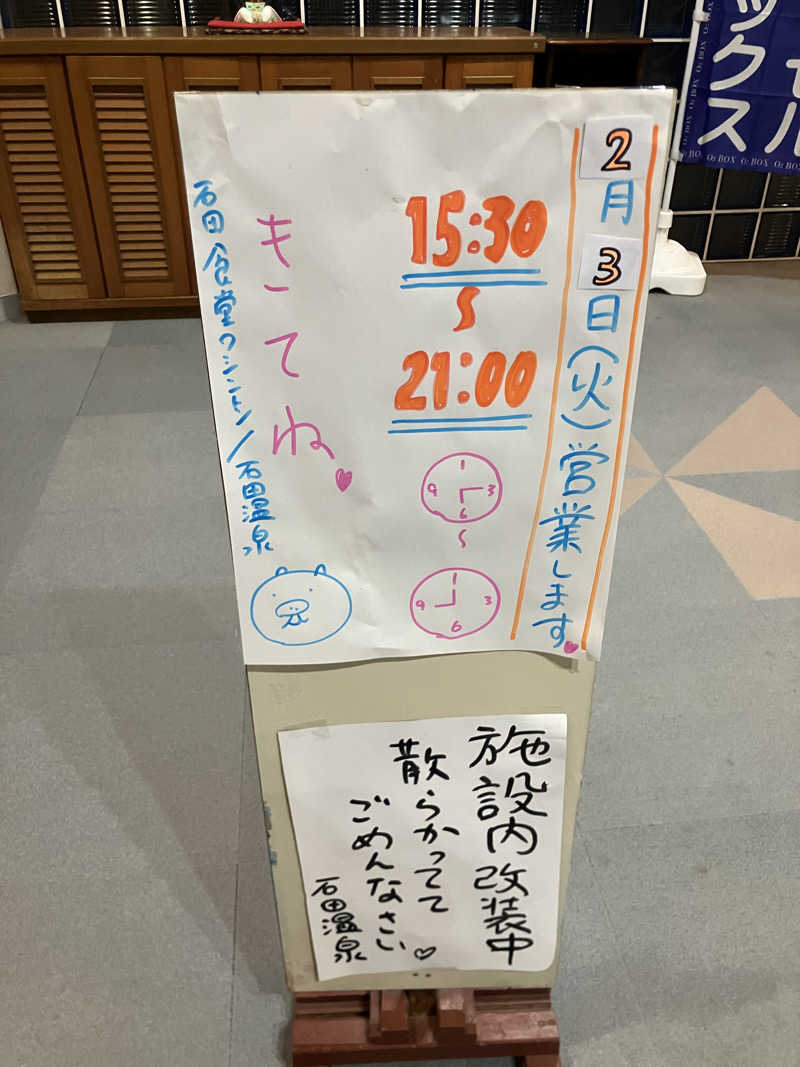 2月3日(火)営業します
15:30
〜
21:00
9 3 6
〜
9 3 6
きてね
石田食堂ワシントン/石田温泉
施設内改装中
散らかってて
ごめんなさい
石田温泉
ックス
セル
O2 BOX